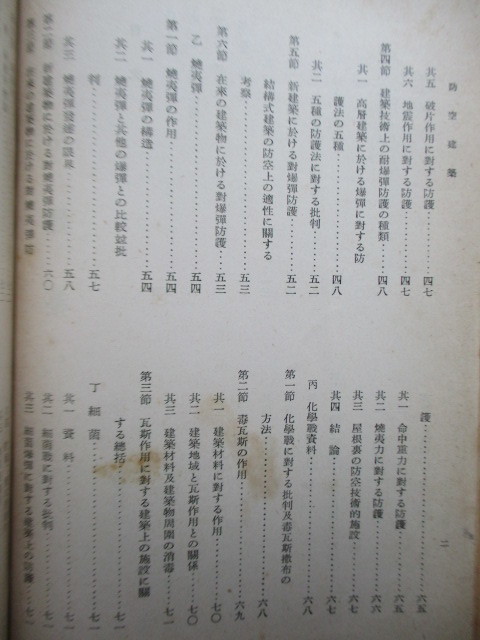 防空建築
其五 破片作用に對する防護……四七
其六 地震作用に對する防護……四七
第四節 建築技術上の耐爆彈防護の種類……四八
其一 高層建築に於ける爆彈に對する防
護法の五種……四八
其二 五種の防護法に對する批判……五二
第五節 新建築に於ける對爆彈防護……五二
結構式建築の防空上の適性に關する
考察……五三
第六節 在來の建築物に於ける對爆彈防護……五三
乙 燒夷彈……五四
第一節 燒夷彈の作用……五四
其一 燒夷彈の構造……五四
其二 燒夷彈と其他の爆彈との比較並批
判……五七
其三 燒夷彈發達の……五八
第二節 新建築物に於ける對燒夷彈防護……六〇
二
護……六五
其一 命中重力に對する防護……六五
其二 燒夷力に對する防護……六六
其三 屋根裏の防空技術的施設……六七
其四 結論……六七
丙 化學戰資料……六八
第一節 化學戰に對する批判及毒瓦斯撒布の
方法……六八
第二節 毒瓦斯の作用……六九
其一 建築材料に對する作用……七〇
其二 建築地域と瓦斯作用との關係……七〇
其三 建築材料及建築物周圍の消毒……七一
第三節 瓦斯作用に對する建築上の施設に關
する總括……七一
丁 細菌……七一
其一 資料……七一
其二 細菌戰に對する批判……七一
其三 細菌爆彈に對する建築上の防護……七一